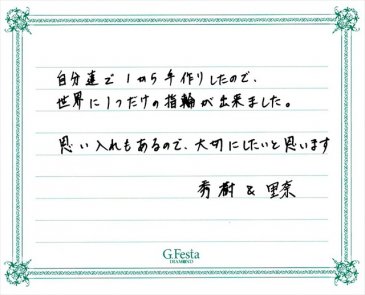 自分達で1から手作りしたので、
世界に1つだけの指輪が出来ました。
思い入れもあるので、大切にしたいと思います
秀樹 & 里奈
G.Festa
DIAMOND